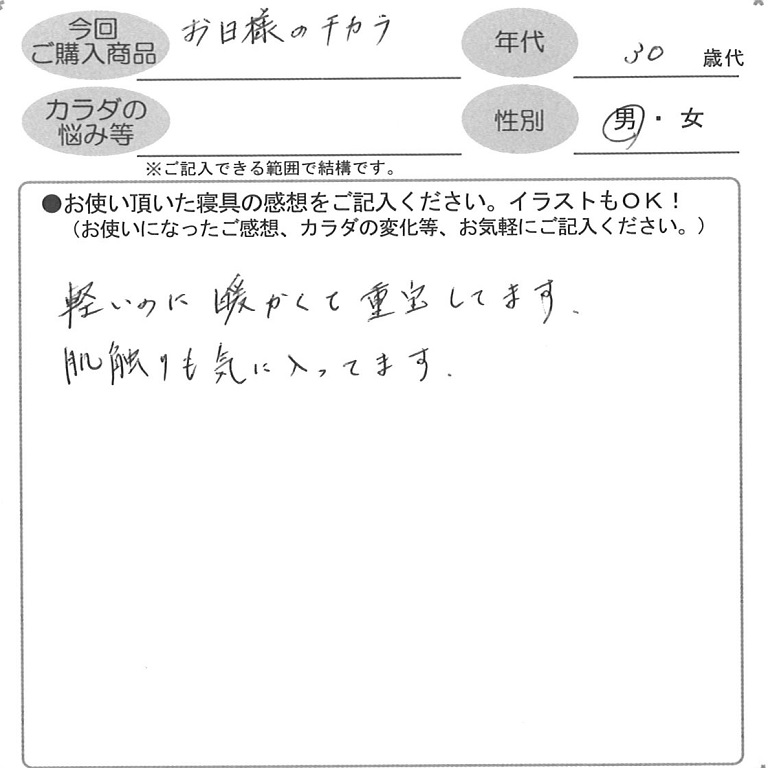 今回
ご購入商品
お日様のチカラ
年代
30 歳代
カラダの
悩み等
性別
男・女
※ご記入できる範囲で結構です。
●お使い頂いた寝具の感想をご記入ください。イラストもOK!
(お使いになったご感想、カラダの変化等、お気軽にご記入ください。)
軽いのに暖かくて重宝してます.
肌触りも気に入ってます.